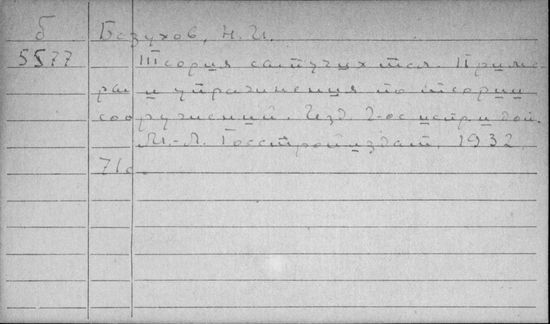 б Безухов, Н.И.
5577 Теория сыпучих тел. Приме-
ры и упражнения по теории
сооружений. Изд. 2-ое испр. и доп.
М.-Л. Госстройиздат, 1932.
71с.